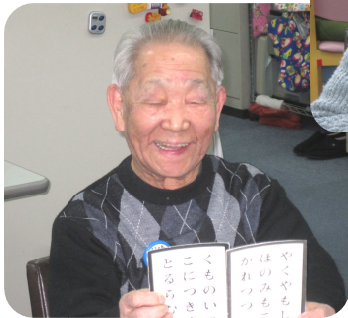 やくやもし
ほのみもこ
かれつつ
くものいつ
こにつき
とるらむ